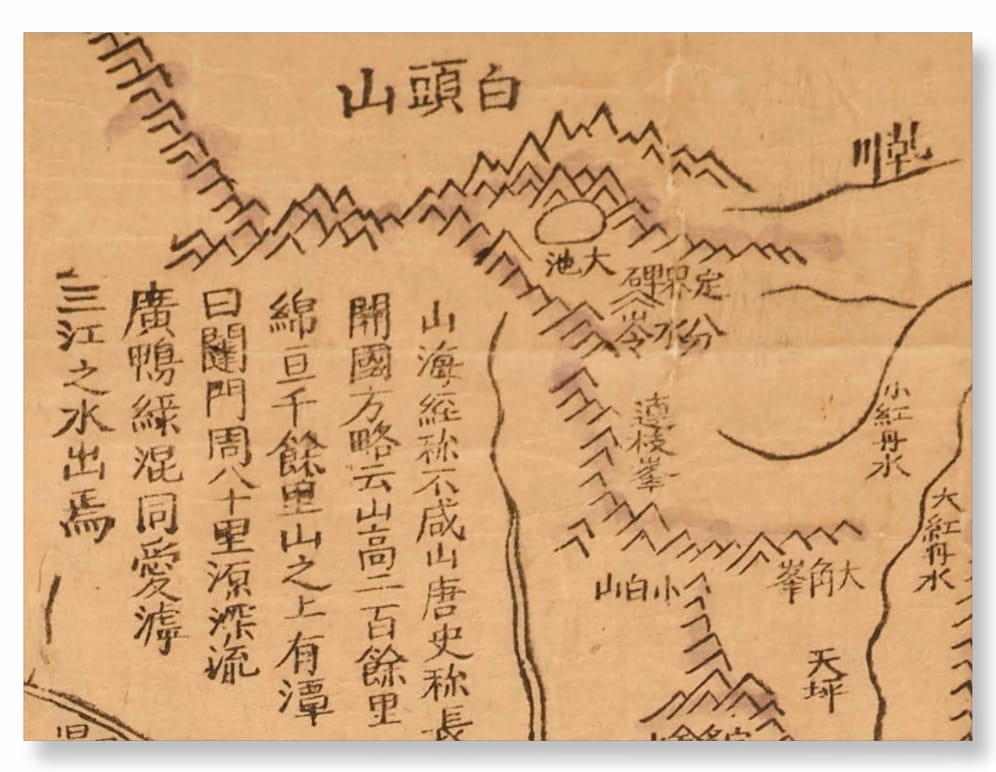 白頭山
乾川
大池
定界碑
分水岺
小紅丹水
大紅丹水
連枝峯
大角峯
小白山
天坪
山海經称不咸山唐史称長
開國方略云山高二百餘里
綿亘千餘里山之上有潭
曰闥門周八十里源深流
廣鴨綠混同愛滹
三江之水出焉